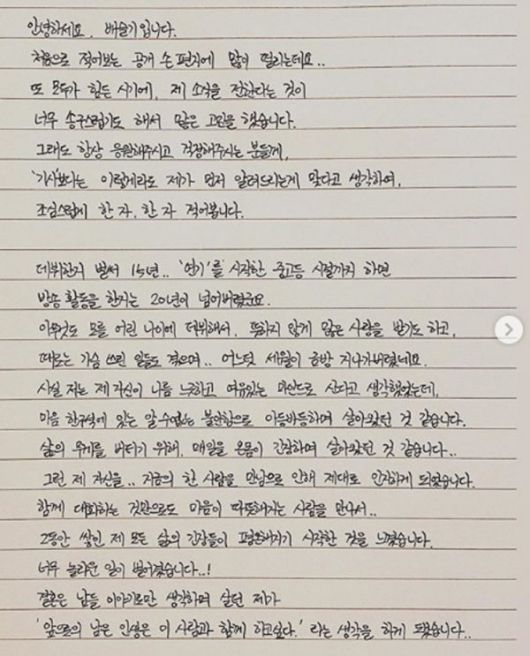 안녕하세요. 배슬기입니다.
처음으로 적어보는 공개 손편지에 많이 떨리는데요..
또 모두가 힘든 시기에, 제 소식을 전한다는 것이
너무 송구스럽기도 해서 많은 고민을 했습니다.
그래도 항상 응원해주시고 걱정해주시는 분들께,
'기사보다는 이렇게라도 제가 먼저 알려드리는게 맞다고 생각하여,
조심스럽게 한 자, 한 자 적어봅니다.
데뷔한지 벌써 15년.. '연기'를 시작한 중고등 시절까지 하면
방송 활동을 한지는 20년이 넘어버렸군요.
아무것도 모를 어린 나이에 데뷔해서, 뜻하지 않게 많은 사랑을 받기도 하고,
때로는 가슴 쓰린 일들도 겪으며.. 어느덧 세월이 흠뻑 지나가버렸네요.
사실 저는 제 자신이 나름 느긋하고 여유있는 마인드로 산다고 생각했었는데,
마음 한구석에 있는 알 수없는 불안함으로 아등바등하며 살아왔던 것 같습니다.
삶의 무게를 버티기 위해, 매일을 온몸이 긴장하며 살아왔던 것 같습니다..
그런 제 자신을.. 지금의 한 사람을 만남으로 인해 제대로 인지하게 되었습니다.
함께 대화하는 것만으로도 마음이 따뜻해지는 사람을 만나서..
그동안 쌓인 제 모든 삶의 긴장들이 평온해지기 시작한 것을 느꼈습니다.
너무 놀라운 일이 벌어졌습니다..!
결혼은 남들 이야기로만 생각하며 살던 제가
'앞으로의 남은 인생은 이 사람과 함께 하고싶다.' 라는 생각을 하게 됐습니다..